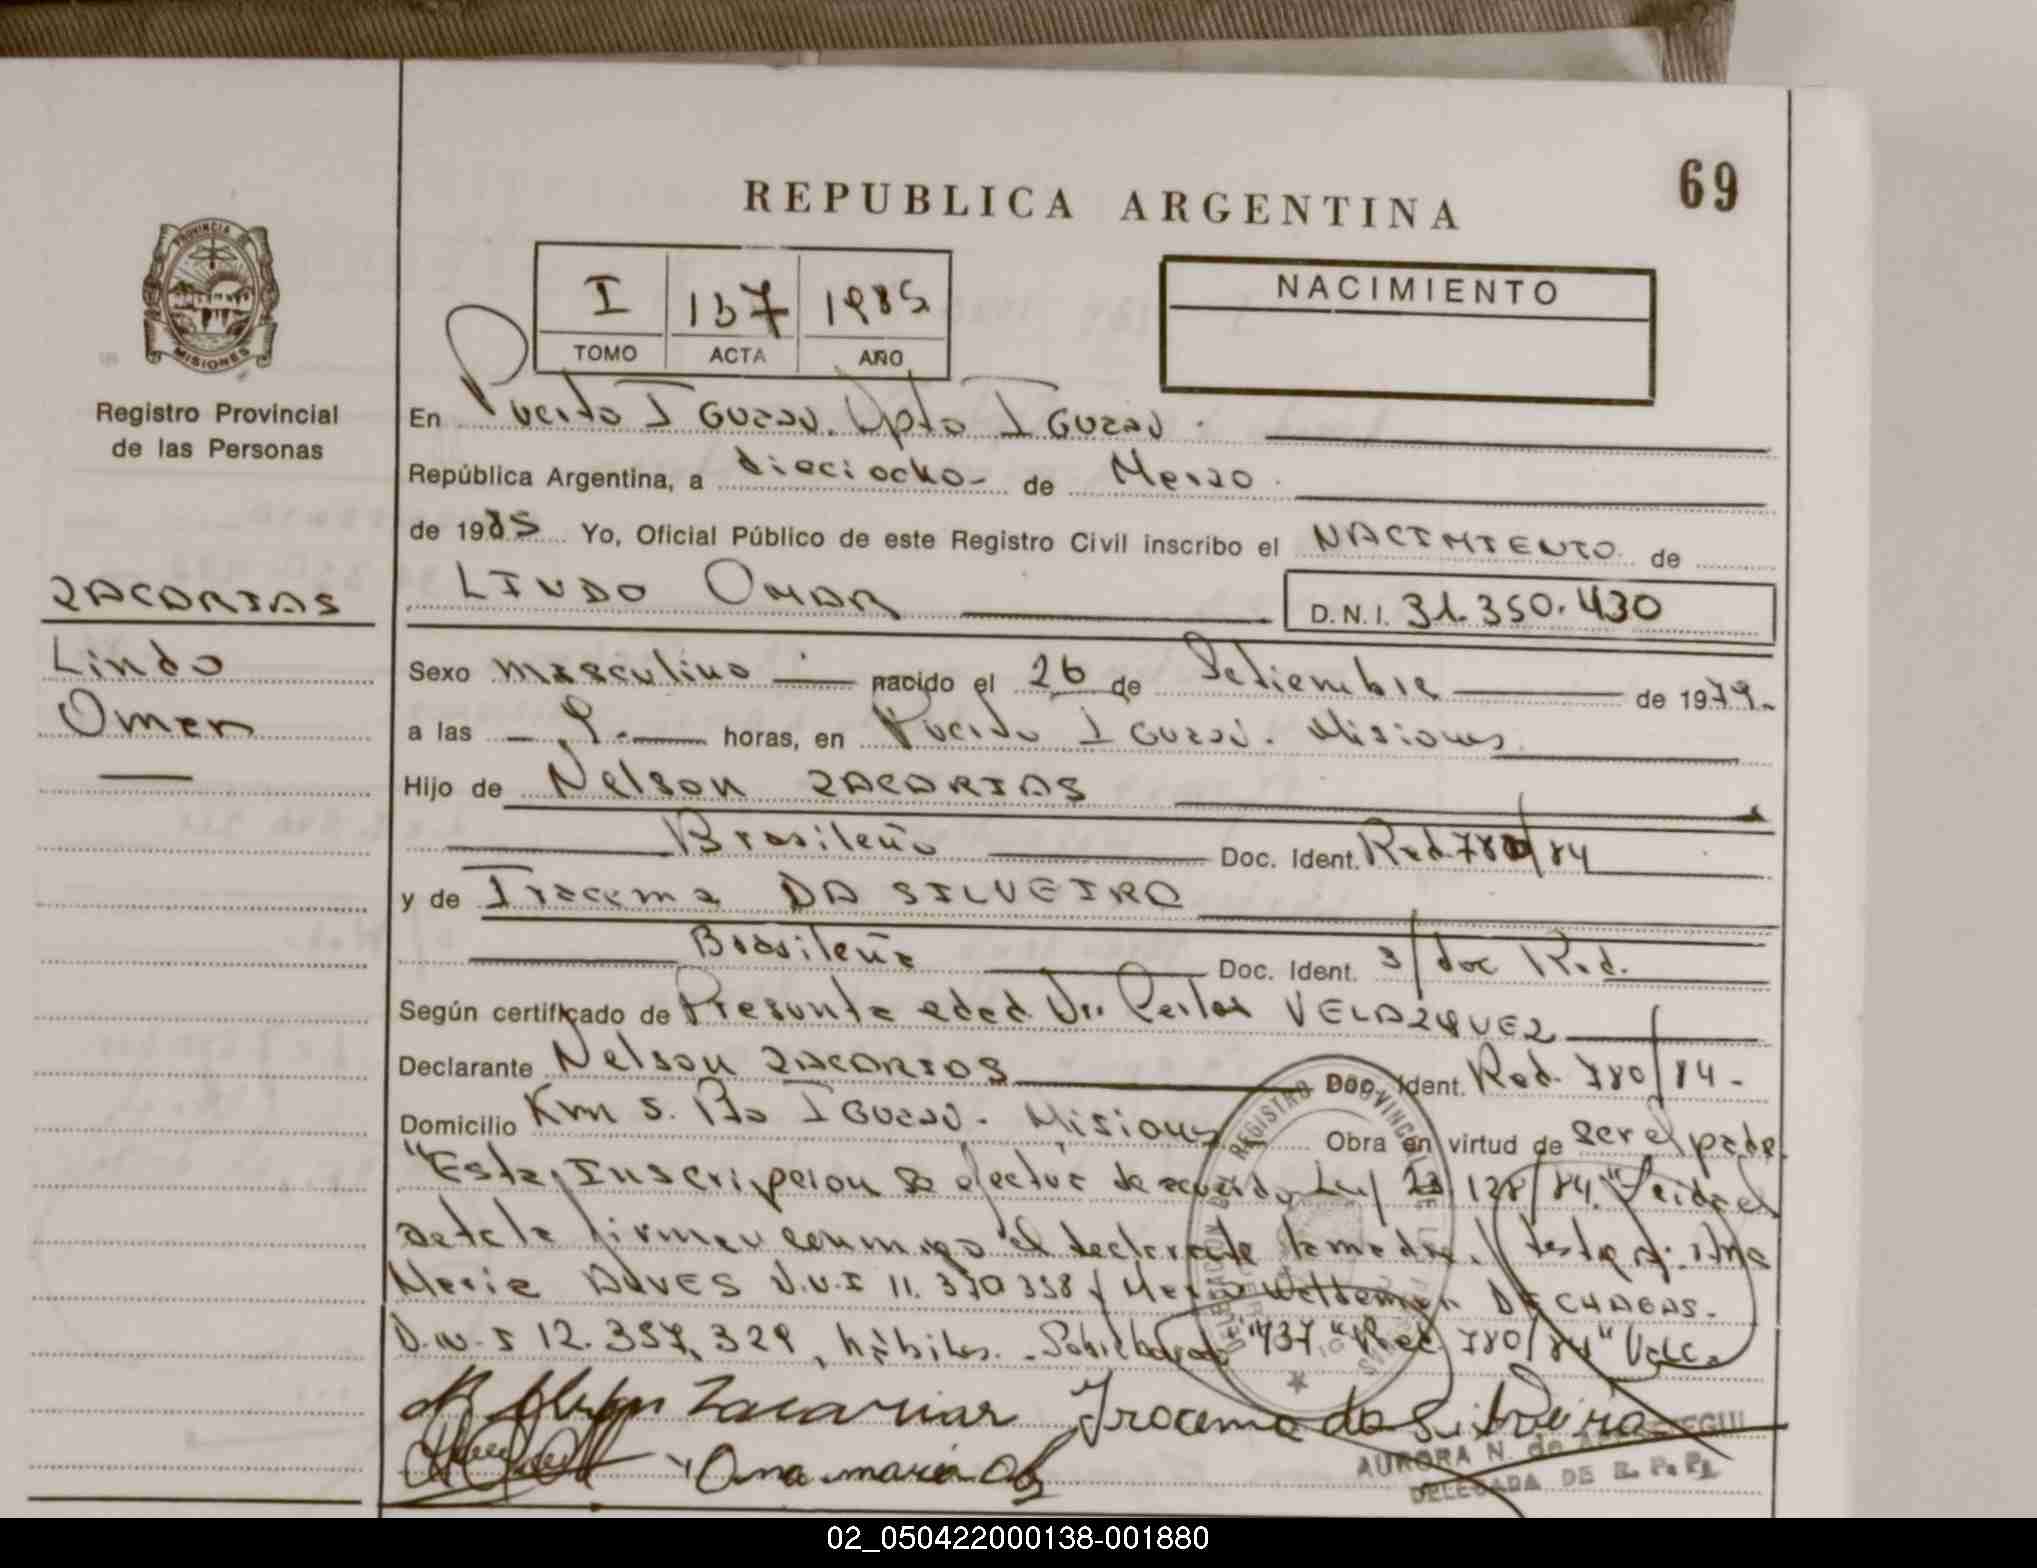 69
REPUBLICA ARGENTINA
I 137 1985
TOMO ACTA AÑO
NACIMIENTO
PROVINCIA DE
MISIONES
Registro Provincial
de las Personas
ZACARIAS
Lindo
Omar
En Puerto Iguazú. Dpto Iguazú.
República Argentina, a dieciocho de Marzo
de 1985 Yo, Oficial Público de este Registro Civil inscribo el NACIMIENTO de
LINDO OMAR D.N.I. 31.350.430
Sexo masculino nacido el 26 de Setiembre de 1979.
a las 9. horas, en Puerto Iguazú. Misiones
Hijo de Nelson ZACARIAS
Brasileño Doc. Ident. Rad. 780/84
y de Iracema DA SILVEIRA
Brasileña Doc. Ident. s/doc Rad.
Según certificado de Presunta edad Dr. Carlos VELAZQUEZ
Declarante Nelson ZACARIAS Doc. Ident. Rad. 780/84.
Domicilio Km 5. Pto Iguazú. Misiones Obra en virtud de ser el padre
"Esta Inscripcion se efectúa de acuerdo Ley 23.128/84." Leida el
acta la firman conmigo el declarante la madre y testigos: Ana
Maria ALVES D.N.I 11.370338 y Waldemar DE CHAGAS.
D.N.I 12.357.329, hábiles. Sobreborrado "137" "Rad. 780/84" Vale.
Nelson Zacarias Iracema da Silveira
Ana maria
AURORA N. de
DELEGADA DE R. P. P.
02_050422000138-001880